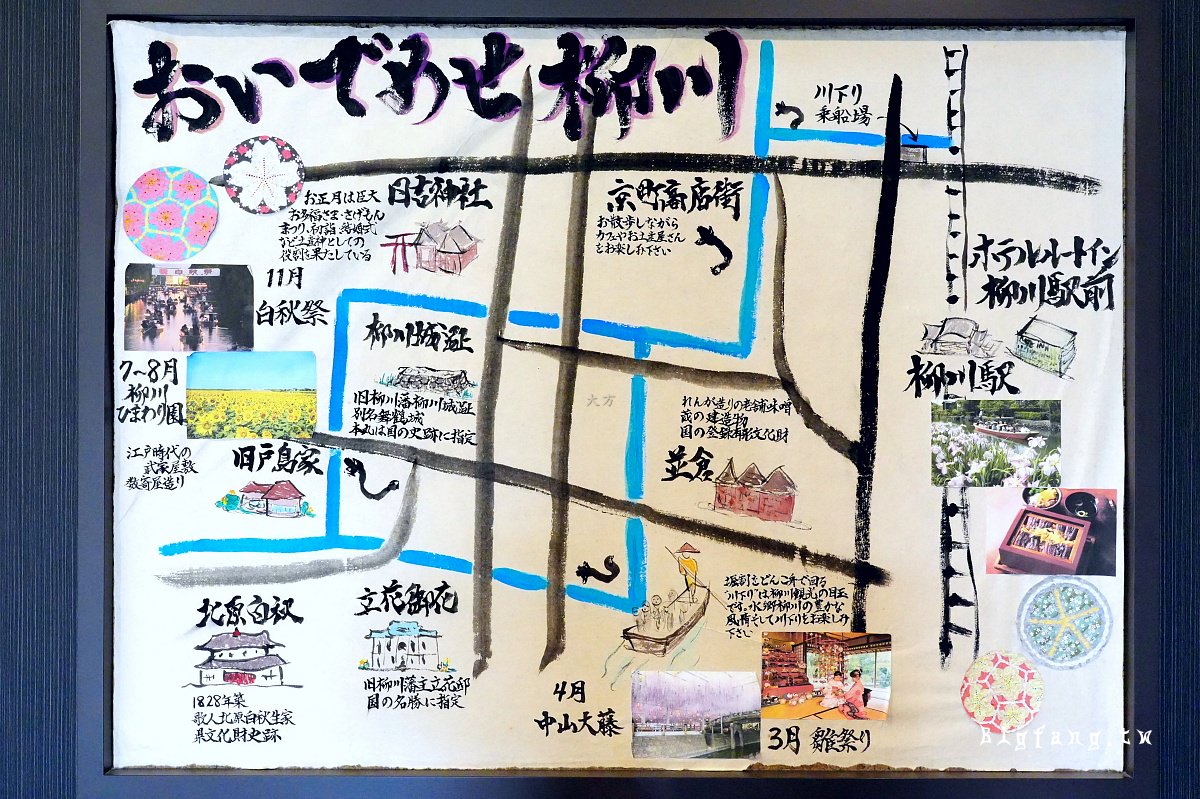 おいでめせ柳川
川下り
乗船場
お正月は巨大
お多福さま・さげもん
まつり、初詣・結婚式
など土産神としての
役割を果たしている
日吉神社
京町商店街
お散歩しながら
カフェやお土産屋さん
をお楽しみ下さい
ホテルルートイン
柳川駅前
11月
白秋祭
柳川城趾
旧柳川藩柳川城趾
別名舞鶴城
本丸は国の史跡に指定
柳川駅
7〜8月
柳川
ひまわり園
れんが造りの老舗味噌
蔵の建造物
国の登録有形文化財
並倉
江戸時代の
武家屋敷
数寄屋造り
旧戸島家
大方
堀割をどんこ舟で回る
"川下り"は柳川観光の目玉
です。水郷柳川の豊かな
風情そして川下りをお楽しみ
下さい
北原白秋
1828年築
歌人北原白秋生家
県文化財史跡
立花御花
旧柳川藩主立花邸
国の名勝に指定
4月
中山大藤
3月 雛祭り
bigfang.tw